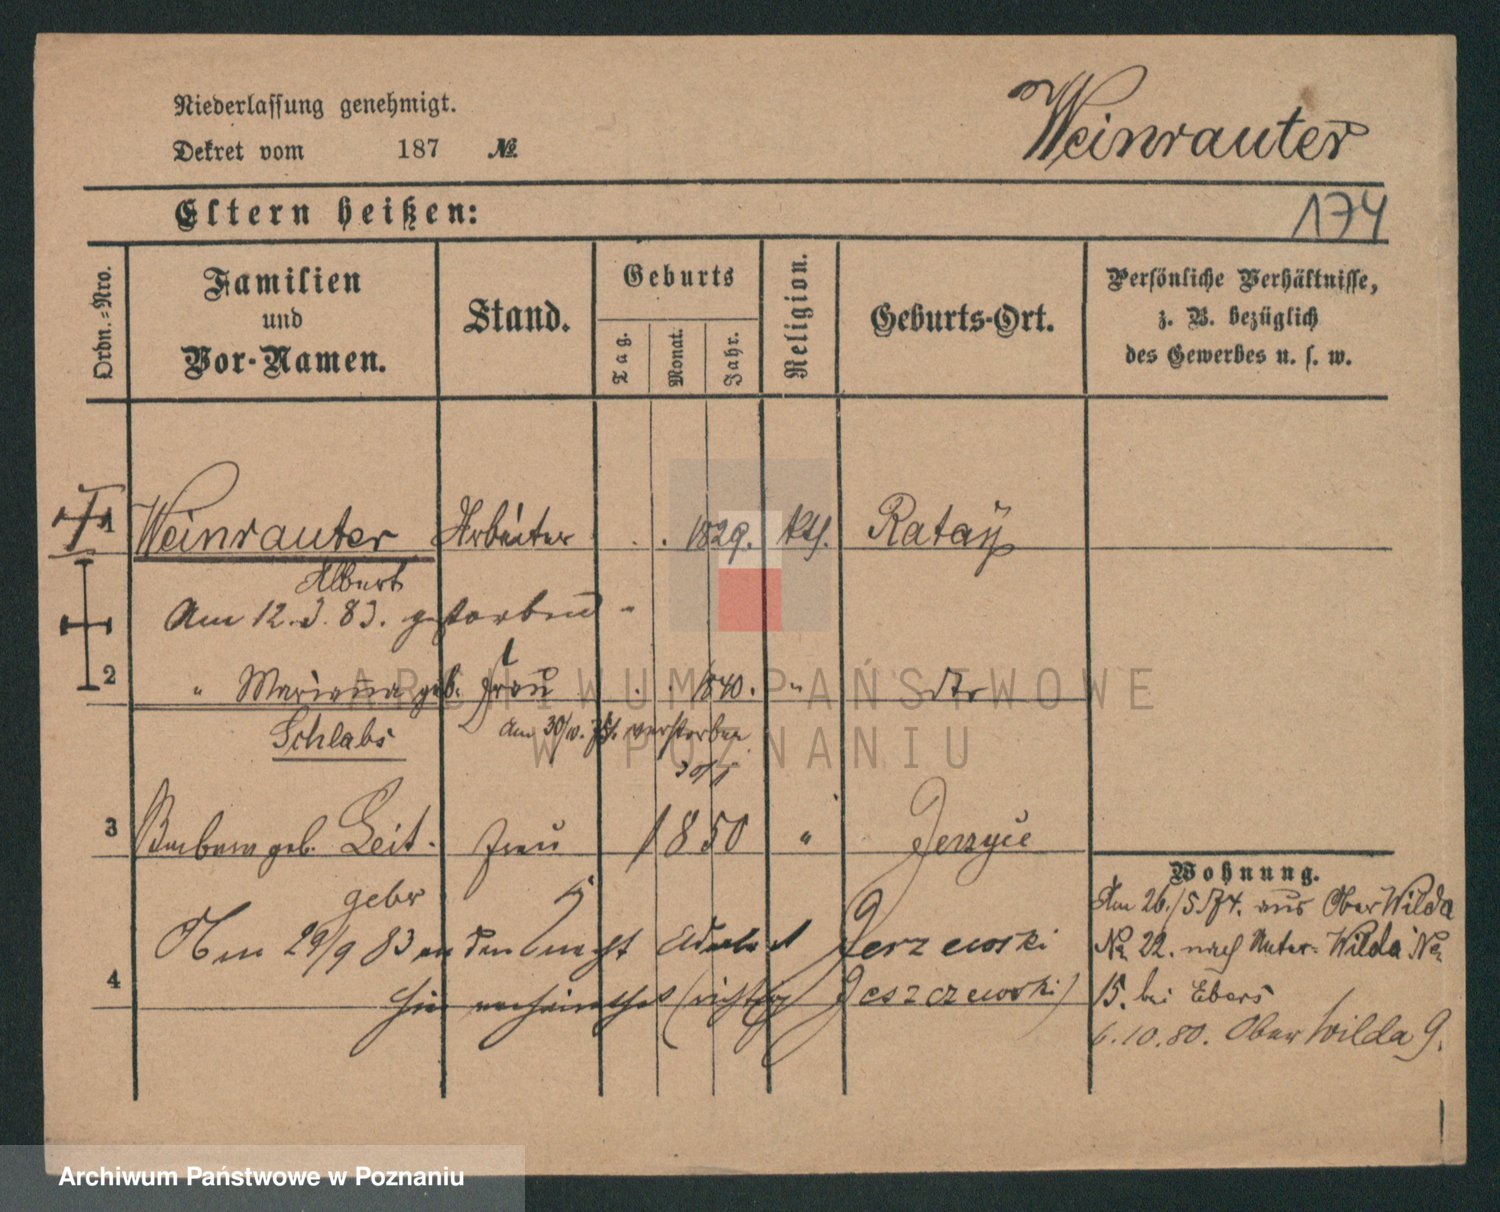 Niederlassung genehmigt.
Weinrauter
Dekret vom 187 №
Eltern heißen:
174
Ordn.-Nro.
Familien
und
Vor-Namen.
Stand.
Geburts
Tag.
Monat.
Jahr.
Religion.
Geburts-Ort.
Persönliche Verhältnisse,
z. B. bezüglich
des Gewerbes u. s. w.
1 Weinrauter Arbeiter . . 1829. kth. Ratay
Albert
Am 12.3.83. gestorben
2 " Marianna geb. Frau . . 1840. " dto
Schlabs
Am 30/ verstorben
3 Barbara geb. Leit. Frau 1850 " Jerzyce
Wohnung.
Am 26./5.74. aus Ober Wilda
№ 22. nach Unter-Wilda №
15. bei Ebers
6.10.80. Ober Wilda 9.
Am 29/9 83 an den Jerzewski
4 verheirathet (richtig Jeszczewski)
ARCHIWUM PAŃSTWOWE
W POZNANIU
Archiwum Państwowe w Poznaniu